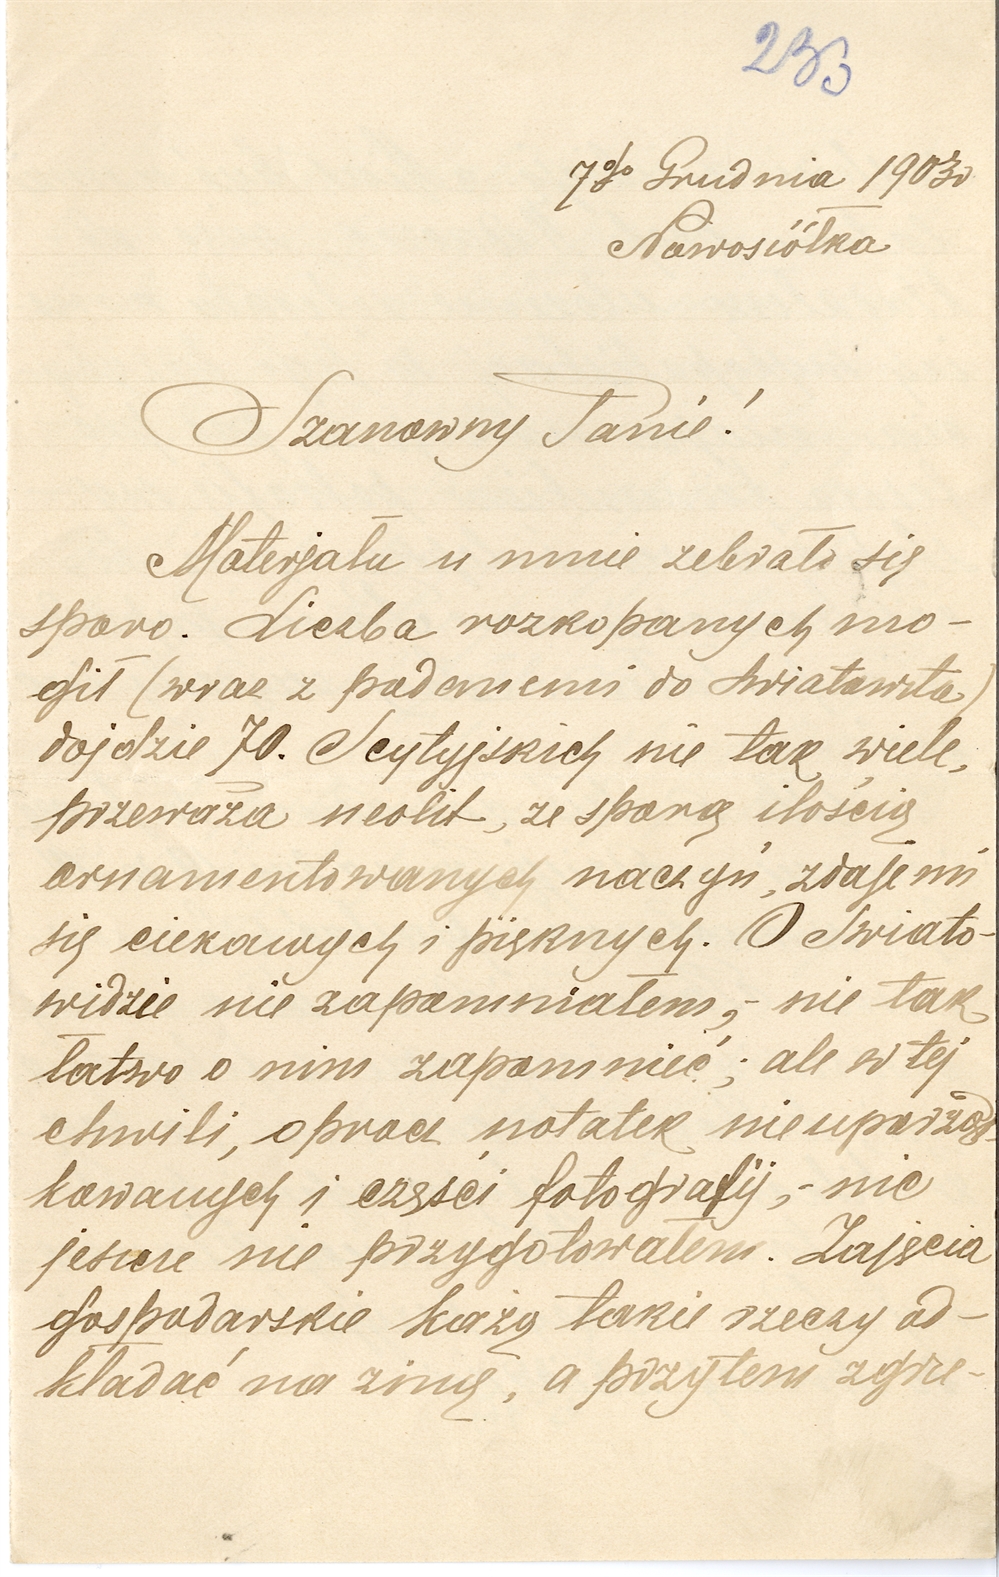 233
7go Grudnia 1903r
Nowosiółka
Szanowny Panie!
Materjału u mnie zebrało się
sporo. Liczba rozkopanych mo-
gił (wraz z podanemi do Światowita)
dojdzie 70. Scytyjskich nie tak wiele,
przeważa neolit, ze sporą ilością
ornamentowanych naczyń, zdaje mi
się ciekawych i pięknych. O Swiato-
widzie nie zapomniałem,- nie tak
łatwo o nim zapomnieć; ale w tej
chwili, oprocz notatek nieuporząd-
kowanych i części fotografij,- nic
jeszcze nie przygotowałem. Zajęcia
gospodarskie każą takie rzeczy od-
kładać na zimę, a przytem zgrze-